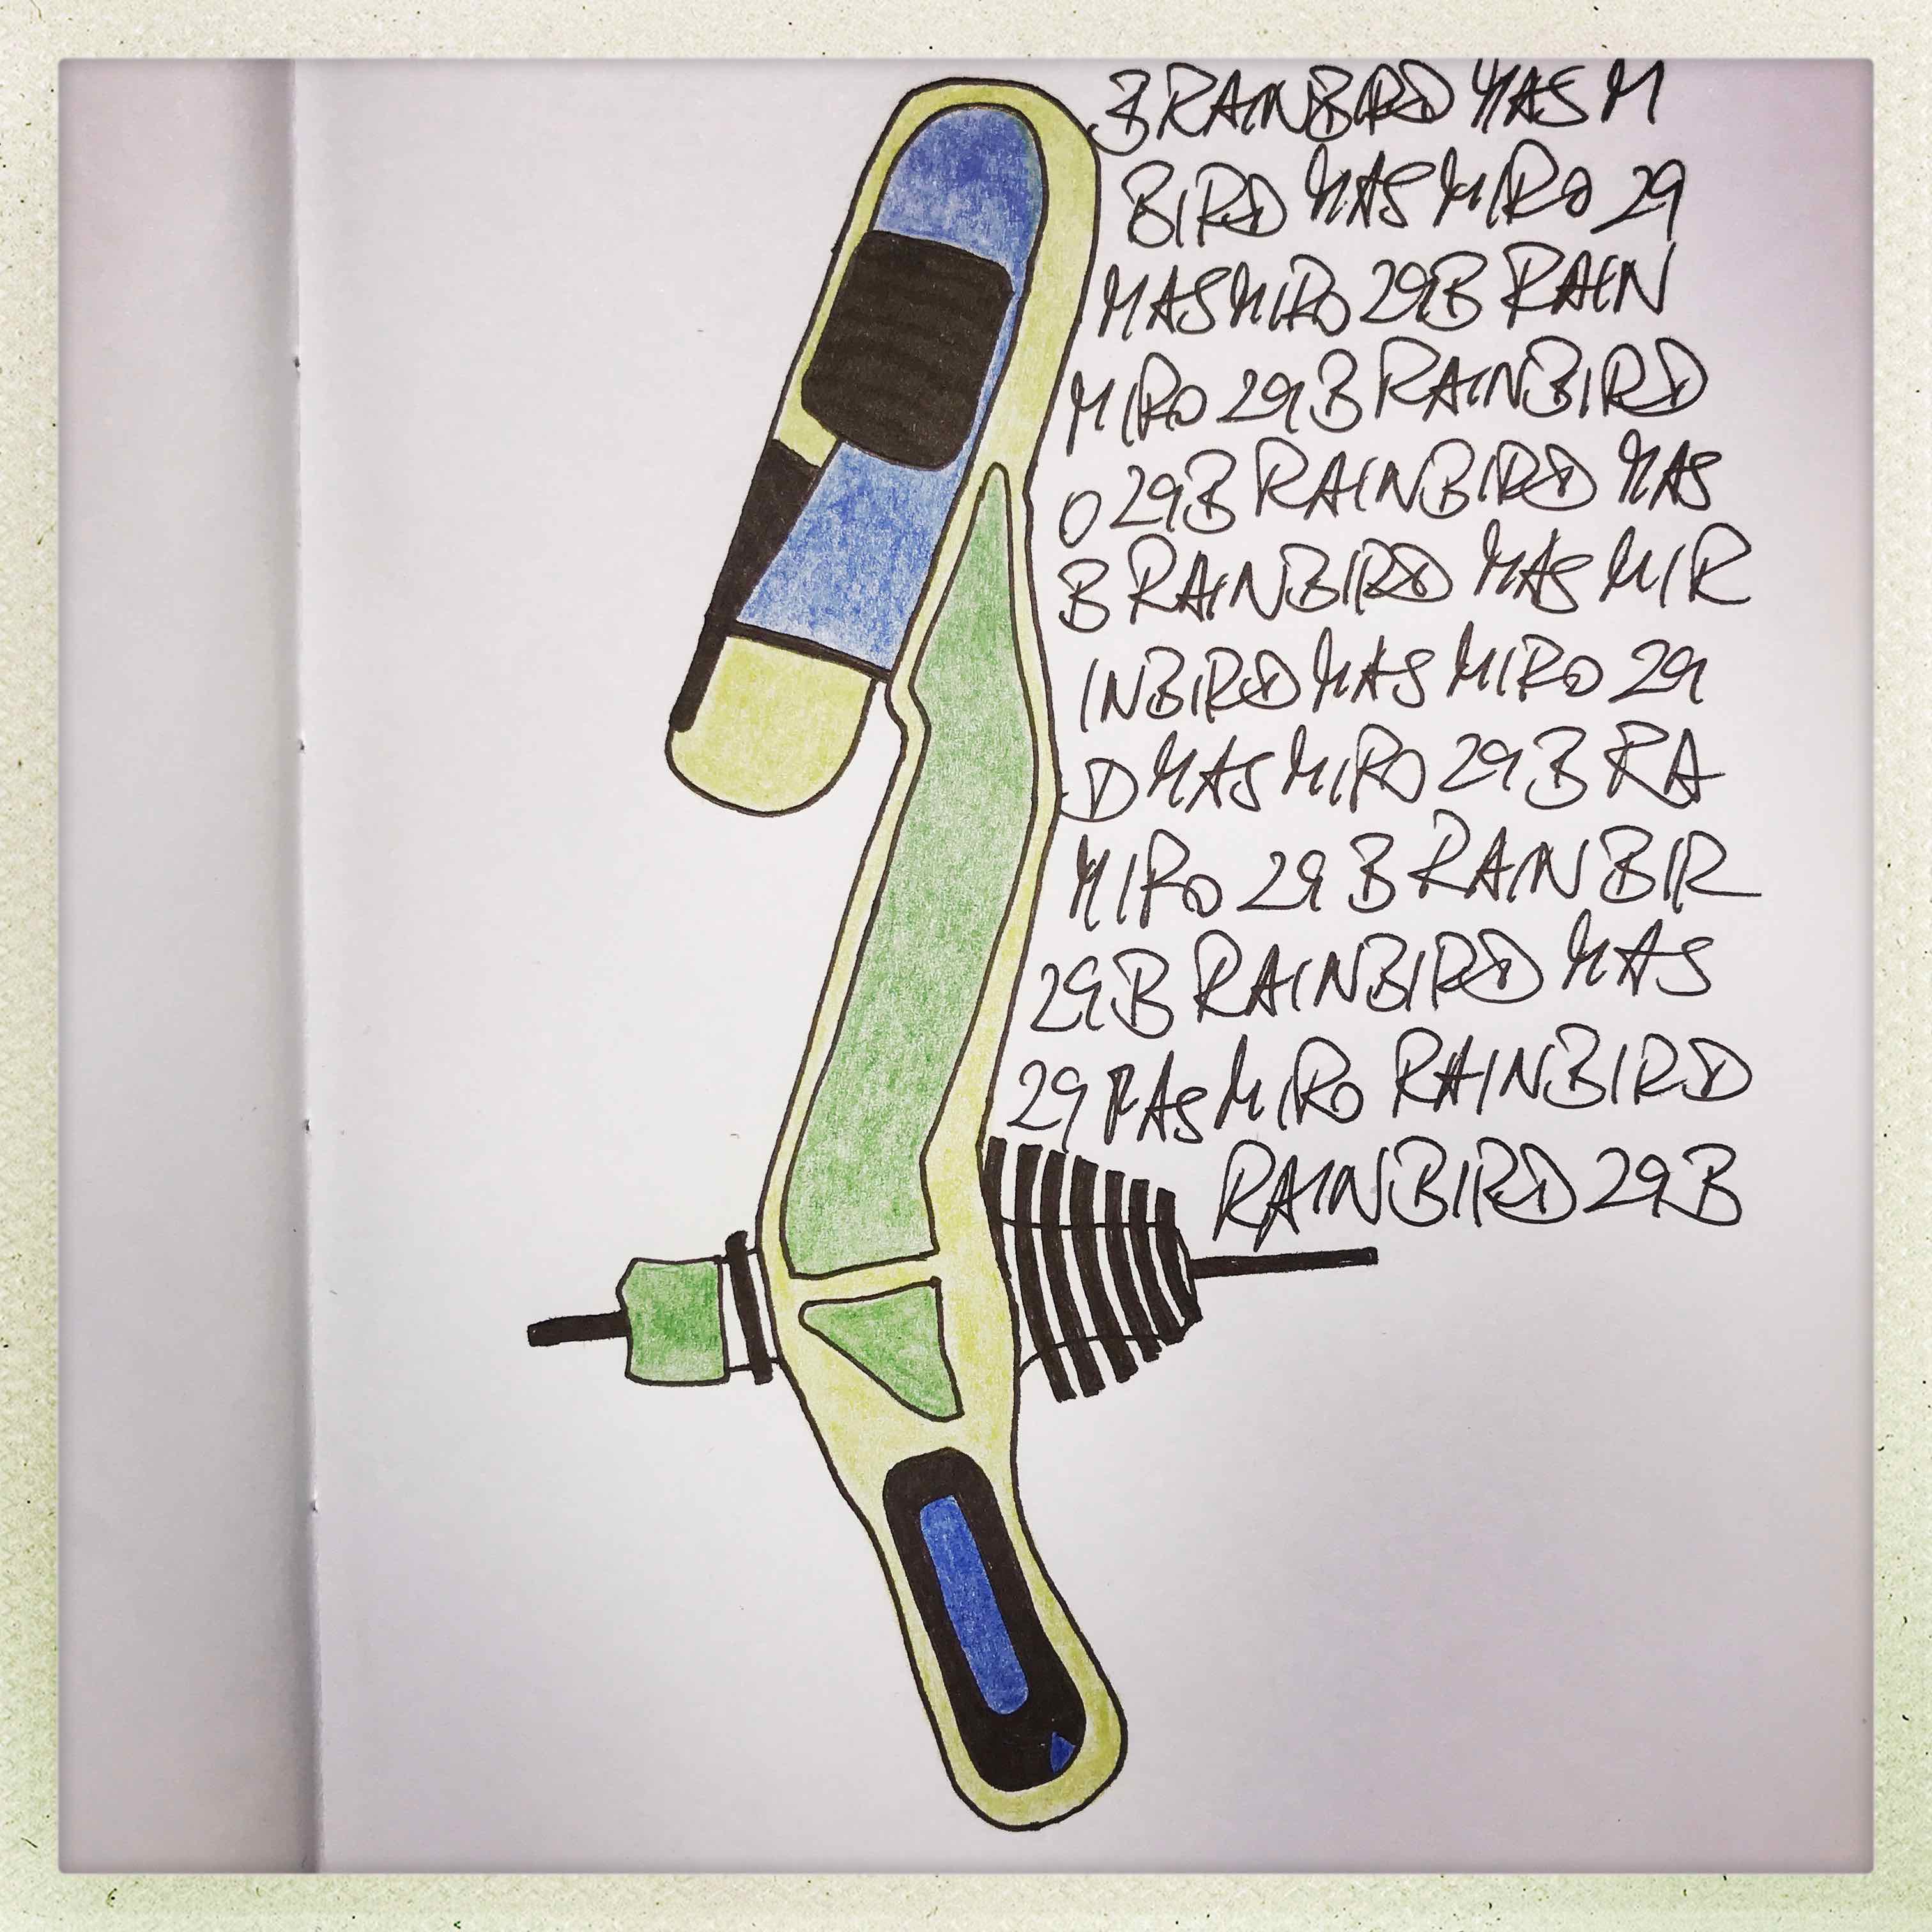 B RAINBIRD MAS M
BIRD MAS MIRO 29
MAS MIRO 29B RAIN
MIRO 29B RAINBIRD
O 29B RAINBIRD MAS
B RAINBIRD MAS MIR
INBIRD MAS MIRO 29
D MAS MIRO 29B RA
MIRO 29B RAINBIR
29B RAINBIRD MAS
29 MAS MIRO RAINBIRD
RAINBIRD 29B